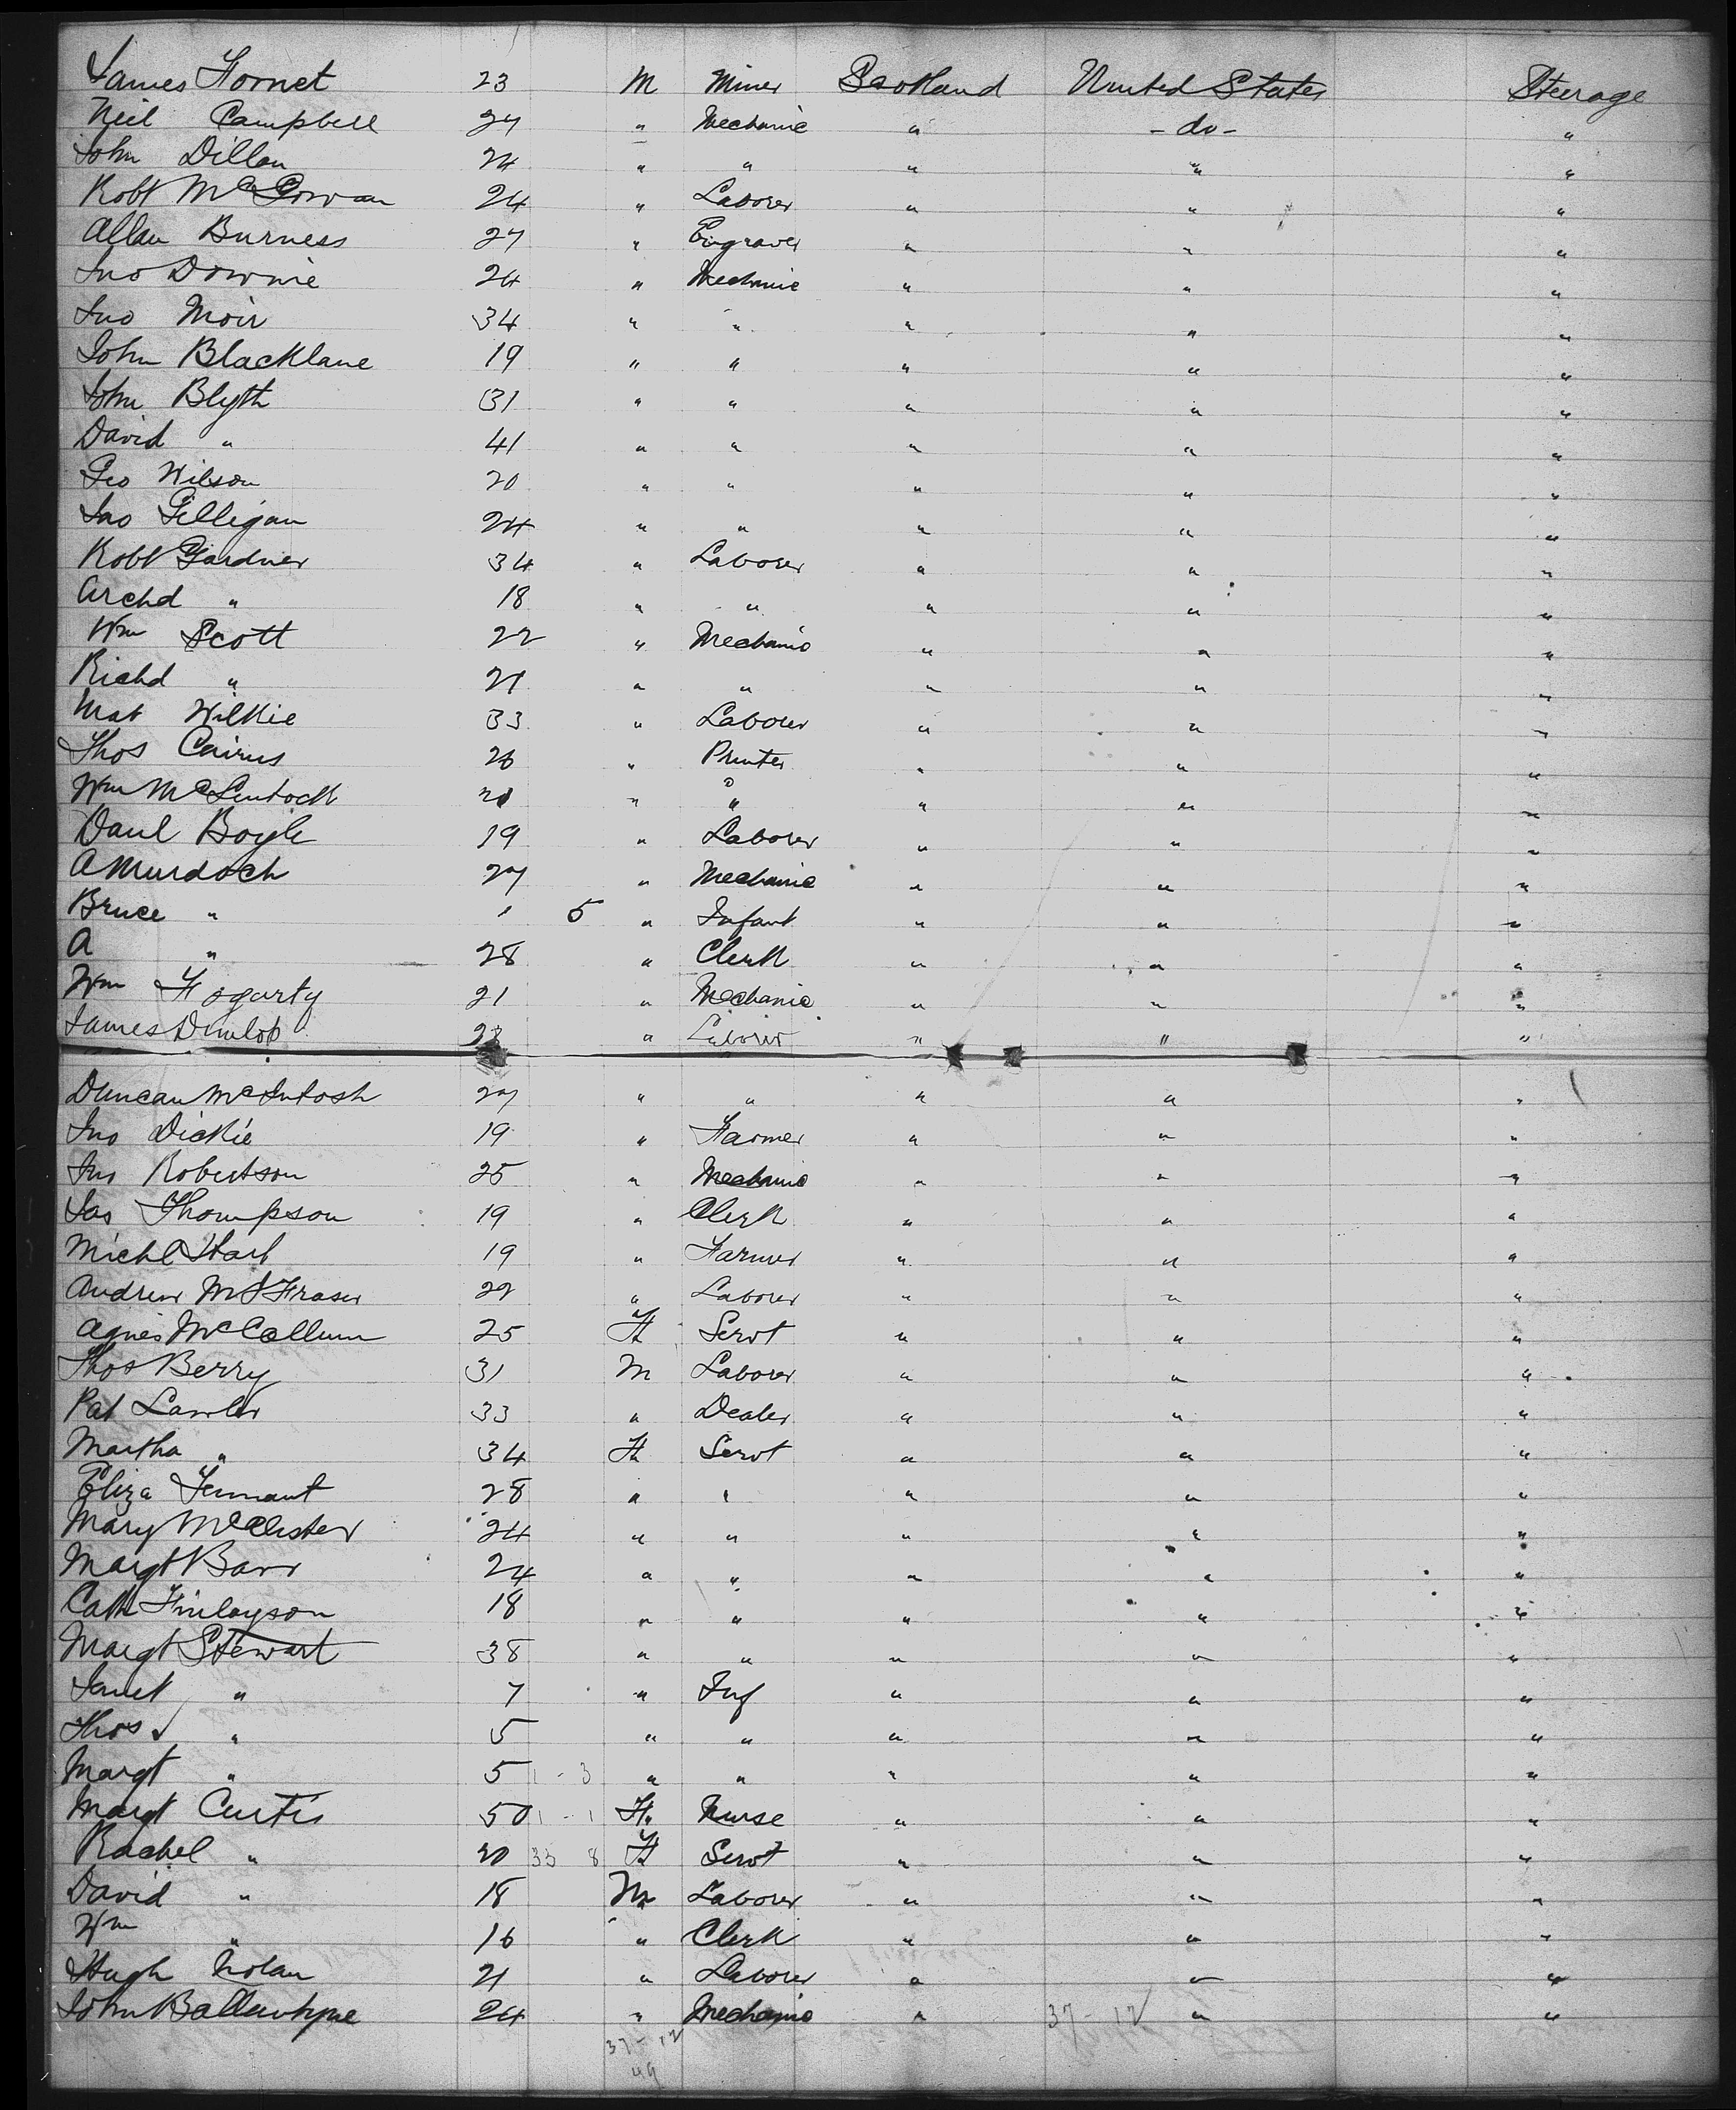 James Hornet 23 M Miner Scotland United States Steerage
Neil Campbell 27 " Mechanic " - do - "
John Dillon 24 " " " " "
Robt McGowan 24 " Laborer " " "
Allan Burness 27 " Engraver " " "
Jno Downie 24 " Mechanic " " "
Jno Moir 34 " " " " "
John Blacklane 19 " " " " "
John Blyth 31 " " " " "
David " 41 " " " " "
Geo Wilson 20 " " " " "
Jas Gilligan 24 " " " " "
Robt Gardner 34 " Laborer " " "
Archd " 18 " " " " "
Wm Scott 22 " Mechanic " " "
Richd " 21 " " " " "
Mat Wilkie 33 " Laborer " " "
Thos Cairns 26 " Printer " " "
Wm McLintock " " " " "
Danl Boyle 19 " Laborer " " "
A Murdoch 27 " Mechanic " " "
Bruce " 1 5 " Infant " " "
A " 28 " Clerk " " "
Wm Fogarty 21 " Mechanic " " "
James Dunlop " Laborer " " "
Duncan McIntosh 27 " " " " "
Jno Dickie 19 " Farmer " " "
Jno Robertson 25 " Mechanic " " "
Jas Thompson 19 " Clerk " " "
Michl Hart 19 " Farmer " " "
Andrew Fraser 22 " Laborer " " "
Agnes McCallum 25 F Servt " " "
Thos Berry 31 M Laborer " " "
Pat Lawler 33 " Dealer " " "
Martha " 34 F Servt " " "
Eliza Tennant 28 " " " " "
Mary McAlister 24 " " " " "
Margt Barr 24 " " " " "
Cath Finlayson 18 " " " " "
Margt Stewart 38 " " " " "
Janet " 7 " Inf " " "
Thos " 5 " " " " "
Margt " 5 1 - 3 " " " " "
Margt Curtis 50 1 - 1 F Nurse " " "
Rachel " 20 33 8 F Servt " " "
David " 18 M Laborer " " "
Wm " 16 " Clerk " " "
Hugh Nolan 21 " Laborer " " "
John Ballantyne 24 " Mechanic " 37 - 12 " "
37 - 12
49